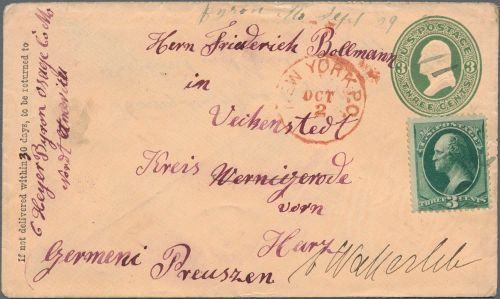 Byron Mo Sept 29
Herrn Friederich Bollmann
in
Veckenstedt
Kreis Wernigerode
vorn
Harz
Germeni Preuszen
If not delivered within 30 days, to be returned to
C Heyer Byron Osage Co Mo
Nordt Amerika
NEW YORK P.O.
OCT
2
U.S. POSTAGE
3 3
THREE CENTS
U.S. POSTAGE
3
CENTS